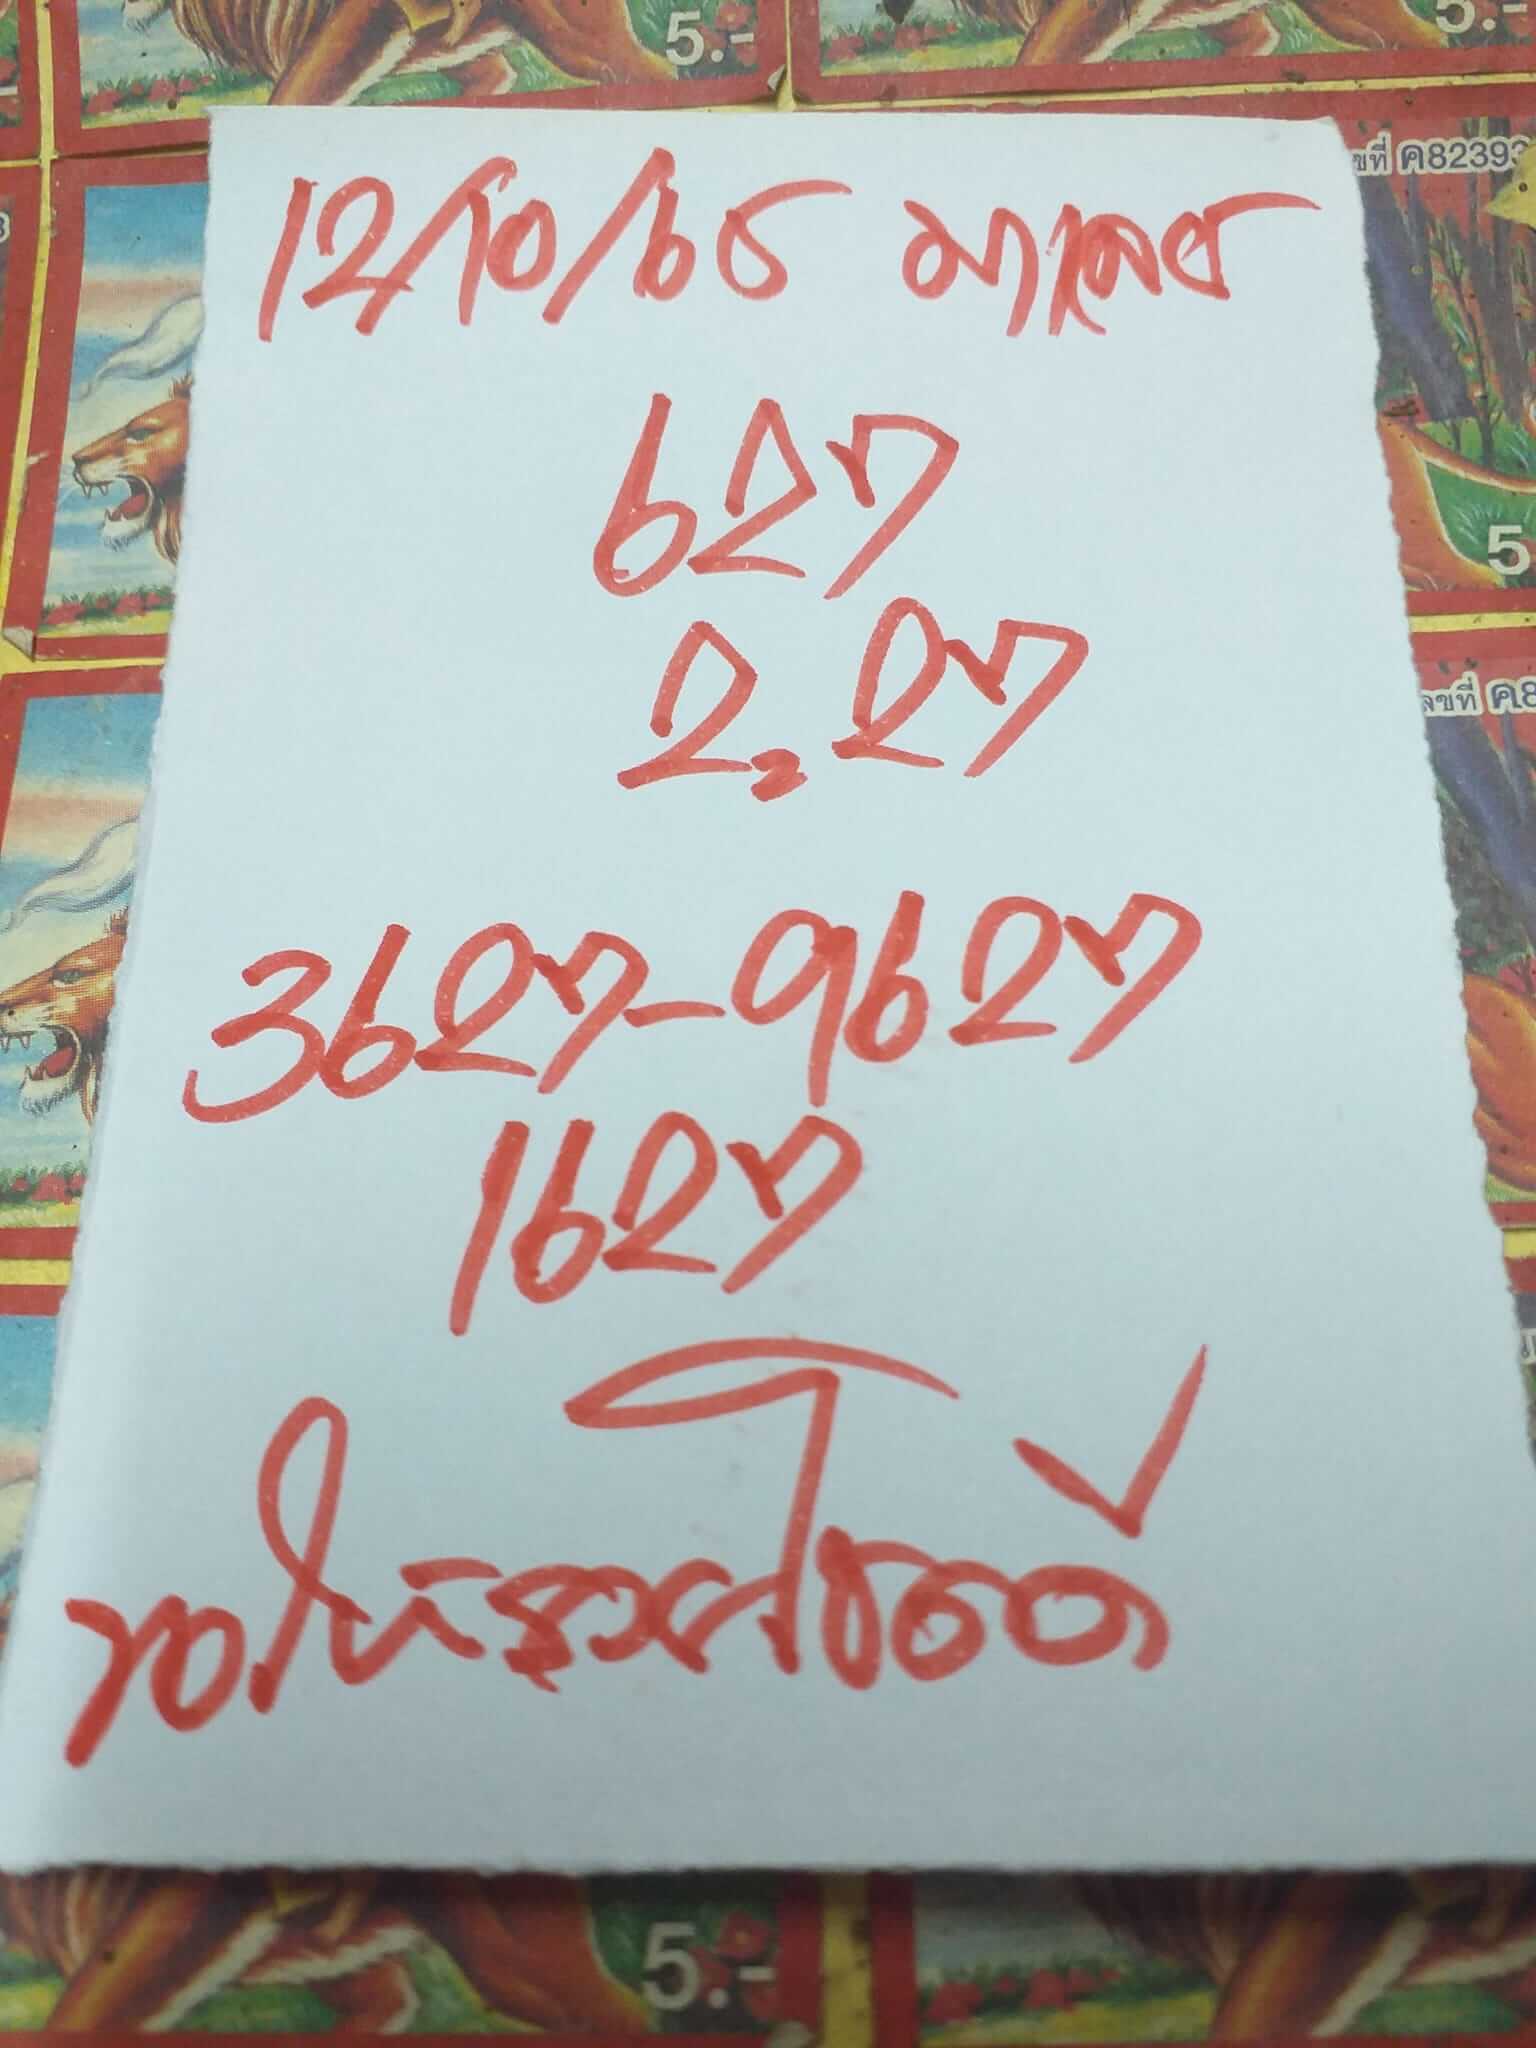 5.-
5.-
ขที่ ค82393
12/10/65 มาเลย์
627
2,27
5
ลขที่ ค8
3627-9627
1627
ขอให้รวยโชคดี
5.-